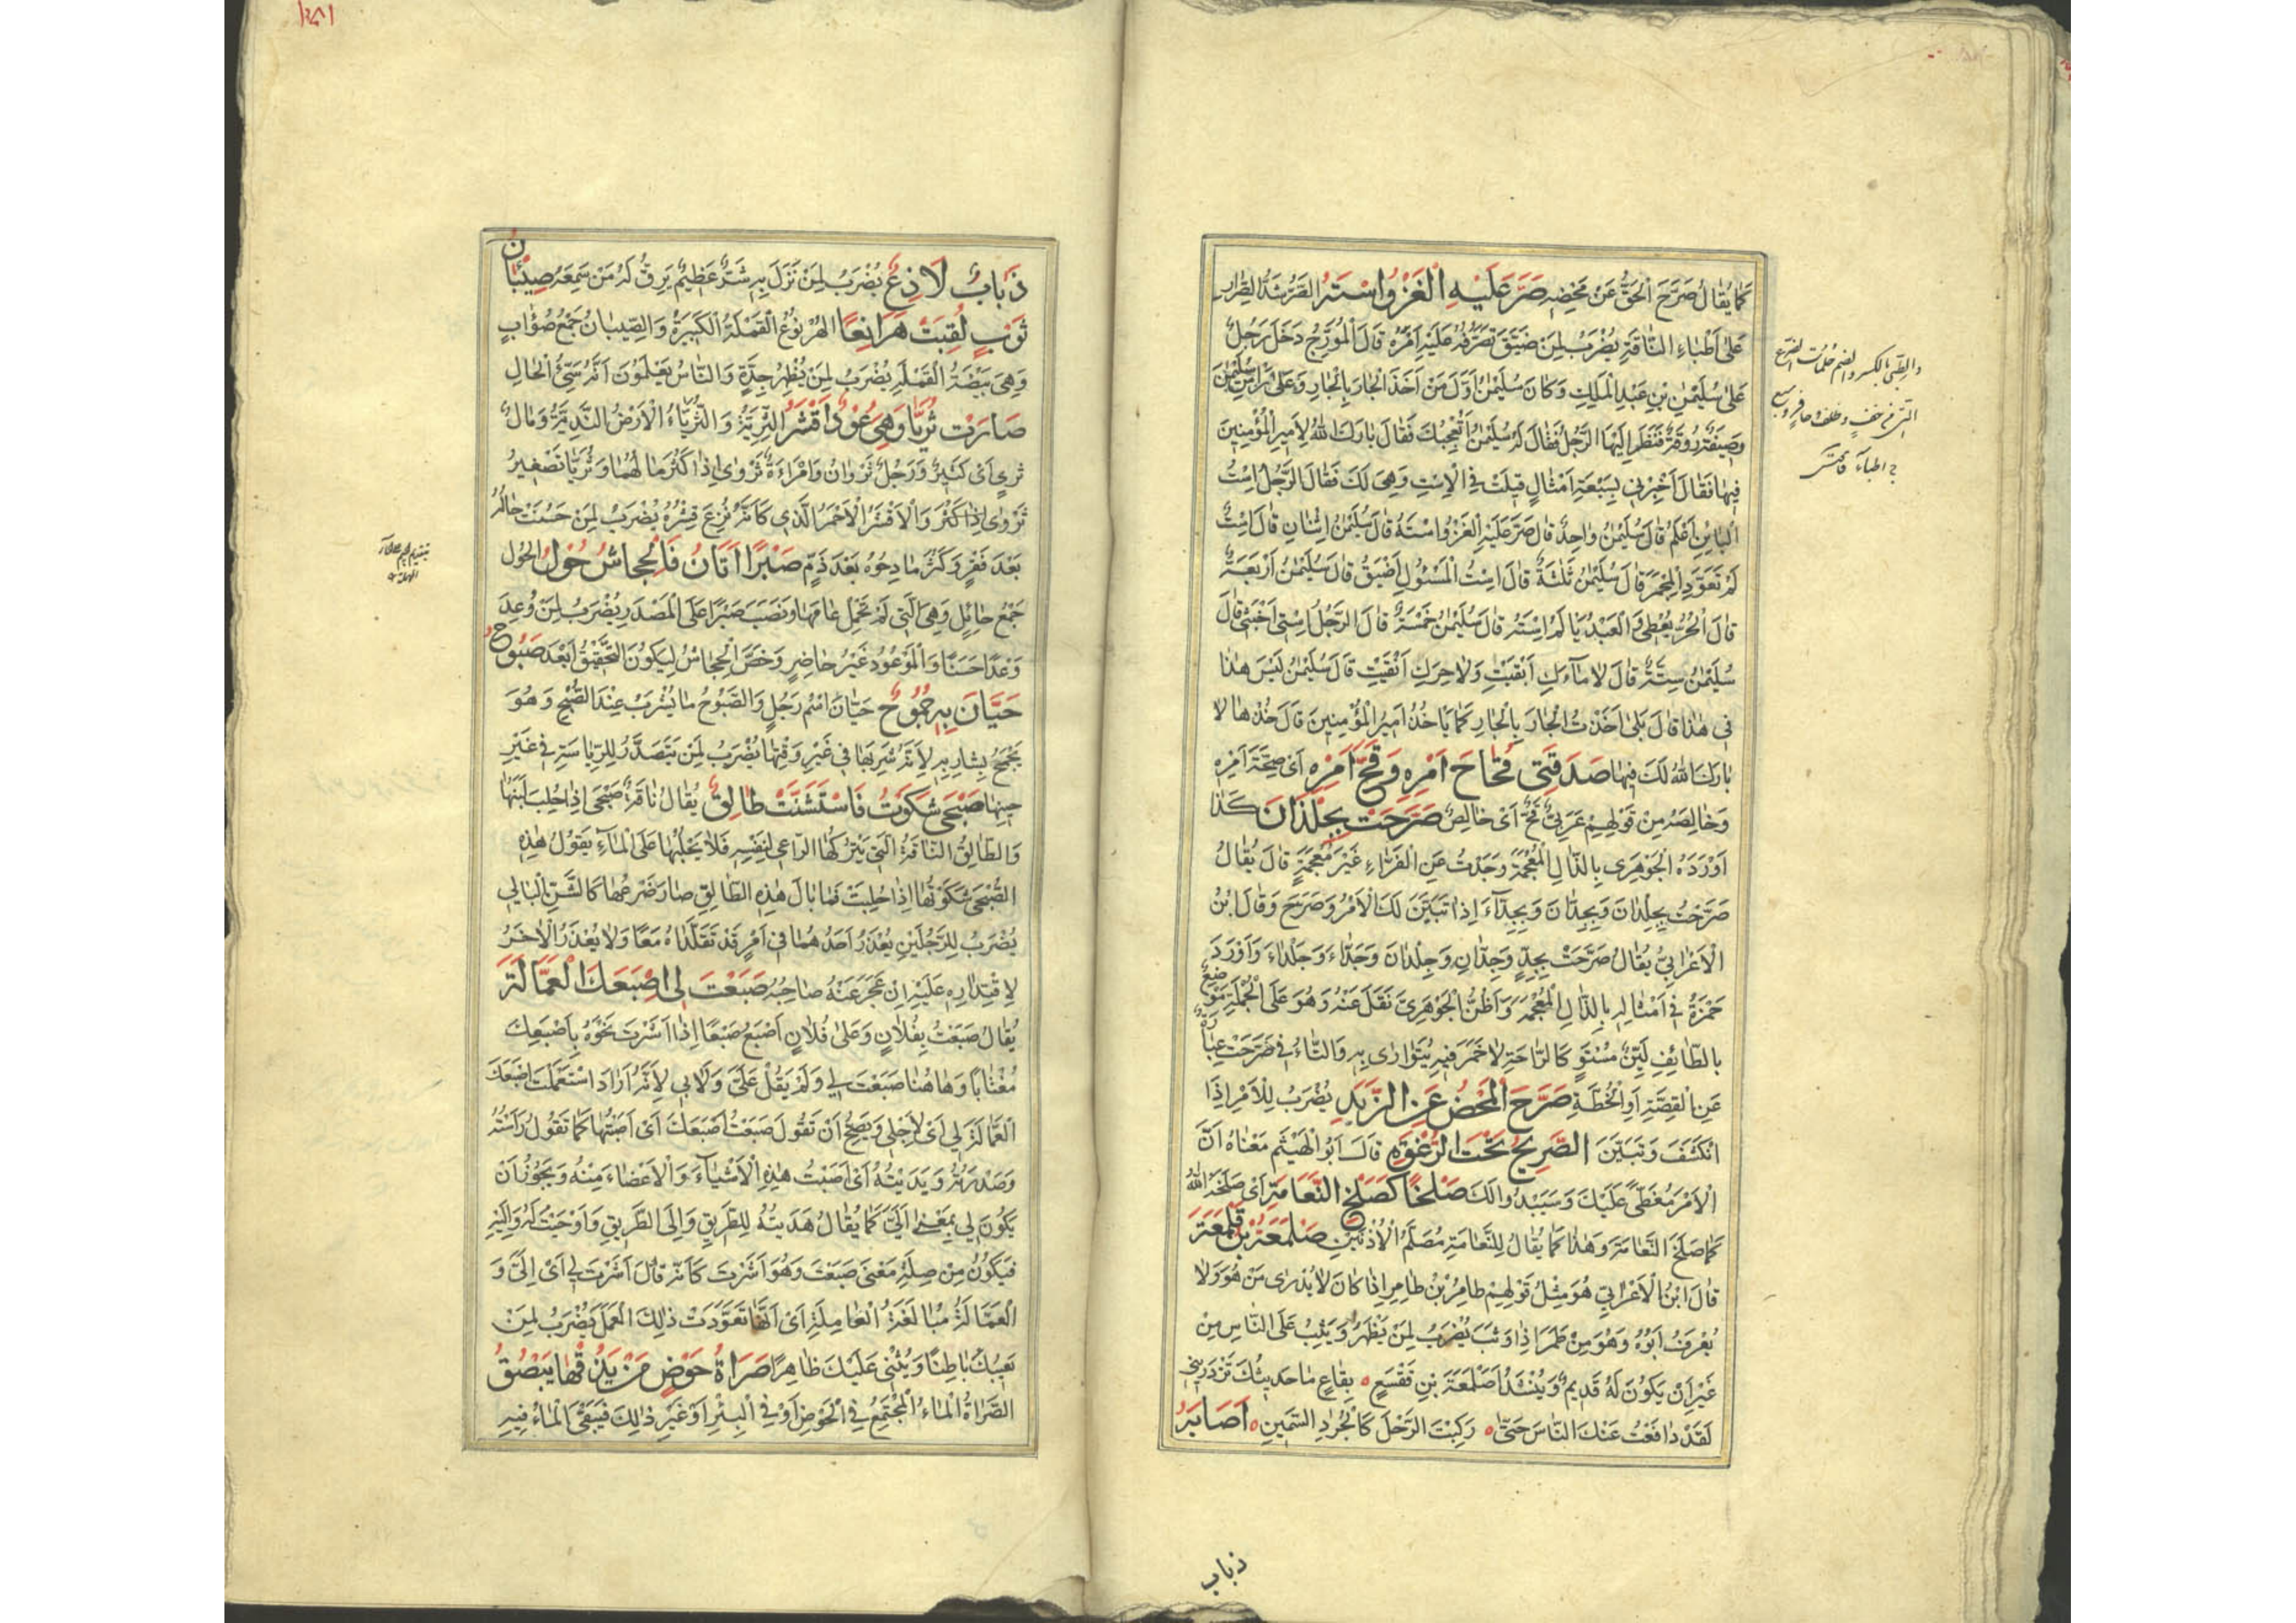 كَمَا يُقَالُ صَرَّحَ الْحَقُّ عَنْ مَحْضِهِ صَرَّ عَلَيْهِ الْغَزْوُ اسْتَهُ الصَّرُّ شَدُّ الصِّرَارِ
عَلَى أَطْبَاءِ النَّاقَةِ يُضْرَبُ لِمَنْ ضَيَّقَ تَصَرُّفُهُ عَلَيْهِ أَمْرَهُ قَالَ الْمُؤَرِّجُ دَخَلَ رَجُلٌ
عَلَى سُلَيْمٰنَ بْنِ عَبْدِ الْمَلِكِ وَكَانَ سُلَيْمٰنُ أَوَّلَ مَنْ أَخَذَ الْجَارَ بِالْجَارِ وَعَلَى رَأْسِ سُلَيْمٰنَ
وَصِيفَةٌ رُوقَةٌ فَنَظَرَ إِلَيْهَا الرَّجُلُ فَقَالَ لَهُ سُلَيْمٰنُ أَتُعْجِبُكَ فَقَالَ بَارَكَ اللهُ لِأَمِيرِ الْمُؤْمِنِينَ
فِيهَا فَقَالَ أَخْبِرْنِي بِسَبْعَةِ أَمْثَالٍ قِيلَتْ فِي الْاِسْتِ وَهِيَ لَكَ فَقَالَ الرَّجُلُ اسْتُ
الْبَائِنِ أَعْلَمُ قَالَ سُلَيْمٰنُ وَاحِدٌ قَالَ صَرَّ عَلَيْهِ الْغَزْوُ اسْتَهُ قَالَ سُلَيْمٰنُ اثْنَانِ قَالَ اسْتٌ
لَمْ تَعَوَّدِ الْمِجْمَرَ قَالَ سُلَيْمٰنُ ثَلٰثَةٌ قَالَ اسْتُ الْمَسْئُولِ أَضْيَقُ قَالَ سُلَيْمٰنُ أَرْبَعَةٌ
قَالَ الْحُرُّ يُعْطِي وَالْعَبْدُ يَأْلَمُ اسْتَهُ قَالَ سُلَيْمٰنُ خَمْسَةٌ قَالَ الرَّجُلُ اسْتِي أَخْبَثِي قَالَ
سُلَيْمٰنُ سِتَّةٌ قَالَ لَا مَاءَكِ أَبْقَيْتِ وَلَا حِرَكِ أَنْقَيْتِ قَالَ سُلَيْمٰنُ لَيْسَ هٰذَا
فِي هٰذَا قَالَ بَلَى أَخَذْتُ الْجَارَ بِالْجَارِ كَمَا يَأْخُذُ أَمِيرُ الْمُؤْمِنِينَ قَالَ خُذْهَا لَا
بَارَكَ اللهُ لَكَ فِيهَا صَدَقَنِي قُحَاحَ أَمْرِهِ وَقُحَّ أَمْرِهِ أَيْ صِحَّةَ أَمْرِهِ
وَخَالِصَهُ مِنْ قَوْلِهِمْ عَرَبِيٌّ قُحٌّ أَيْ خَالِصٌ صَرَّحَتْ بِجِلْذَانَ كَذَا
أَوْرَدَهُ الْجَوْهَرِي بِالذَّالِ الْمُعْجَمَةِ وَجَدْتُ عَنِ الْفَرَّاءِ غَيْرَ مُعْجَمَةٍ قَالَ يُقَالُ
صَرَّحَتْ بِجِلْدَانَ وَبِجِدَّانَ وَبِجِدَّاءَ إِذَا تَبَيَّنَ لَكَ الْأَمْرُ وَصَرَّحَ وَقَالَ ابْنُ
الْأَعْرَابِيِّ يُقَالُ صَرَّحَتْ بِجِدٍّ وَجِدَّانٍ وَجِلْدَانَ وَجِدَّاءَ وَجِلْدَاءَ وَأَوْرَدَ
حَمْزَةُ فِي أَمْثَالِهِ بِالذَّالِ الْمُعْجَمَةِ وَأَظُنُّ الْجَوْهَرِيَّ نَقَلَ عَنْهُ وَهُوَ عَلَى الْجُمْلَةِ مَوْضِعٌ
بِالطَّائِفِ لَيِّنٌ مُسْتَوٍ كَالرَّاحَةِ لَا خَمَرَ فِيهِ يُتَوَارَى بِهِ وَالتَّاءُ فِي صَرَّحَتْ عِبَارَةٌ
عَنِ الْقِصَّةِ أَوِ الْخُطَّةِ صَرَّحَ الْمَحْضُ عَنِ الزَّبَدِ يُضْرَبُ لِلْأَمْرِ إِذَا
انْكَشَفَ وَتَبَيَّنَ الصَّرِيحُ تَحْتَ الرَّغْوَةِ قَالَ أَبُو الْهَيْثَمِ مَعْنَاهُ أَنَّ
الْأَمْرَ مُغَطًّى عَلَيْكَ وَسَيَبْدُو لَكَ صَلْخًا كَصَلْخِ النَّعَامَةِ أَيْ صَلَخَهُ اللهُ
كَمَا صَلَخَ النَّعَامَةَ وَهٰذَا كَمَا يُقَالُ لِلنَّعَامَةِ مُصَلَّمُ الْأُذُنَيْنِ صَلْمَعَةُ بْنُ قَلْمَعَةَ
قَالَ ابْنُ الْأَعْرَابِيِّ هُوَ مِثْلُ قَوْلِهِمْ طَامِرُ بْنُ طَامِرٍ إِذَا كَانَ لَا يُدْرَى مَنْ هُوَ وَلَا
يُعْرَفُ أَبُوهُ وَهُوَ مِنْ طَمَرَ إِذَا وَثَبَ يُضْرَبُ لِمَنْ يَظْهَرُ وَيَثِبُ عَلَى النَّاسِ مِنْ
غَيْرِ أَنْ يَكُونَ لَهُ قَدِيمٌ وَيُنْشَدُ أَصَلْمَعَةَ بْنِ فَقْعَسٍ بِقَاعٍ مَا حَدِيثُكَ تَزْدَرِينِي
لَقَدْ دَافَعْتُ عَنْكَ النَّاسَ حَتَّى رَكِبْتَ الرَّحْلَ كَالْجُرَذِ السَّمِينِ أَصَابَهُ
والطبي بالكسر والضم حلمات الضرع
التى من خف وظلف وحافر وسبع
ج اطباء
ذباب
ذُبَابٌ لَاذِعٌ يُضْرَبُ لِمَنْ نَزَلَ بِهِ شَرٌّ عَظِيمٌ يَرِقُّ لَهُ مَنْ سَمِعَهُ صِئْبَانُ
ثَوْبٍ لُقِّبَتْ هَرَانِعًا الْهُرْنُوعُ الْقَمْلَةُ الْكَبِيرَةُ وَالصِّيبَانُ جَمْعُ صُؤَابٍ
وَهِيَ بَيْضَةُ الْقَمْلَةِ يُضْرَبُ لِمَنْ يُظْهِرُ جِدَّةً وَالنَّاسُ يَعْلَمُونَ أَنَّهُ سَيِّئُ الْحَالِ
صَارَتْ ثُرَيَّا وَهِيَ عُودٌ أَقْشَرُ الثَّرِيَّةُ وَالثَّرْيَاءُ الْأَرْضُ النَّدِيَّةُ وَمَالٌ
ثَرِيٌّ أَيْ كَثِيرٌ وَرَجُلٌ ثَرْوَانُ وَامْرَأَةٌ ثَرْوَى إِذَا كَثُرَ مَالُهُمَا وَثُرَيَّا تَصْغِيرُ
ثَرْوَى إِذَا كَثُرَ وَالْأَقْشَرُ الْأَحْمَرُ الَّذِي كَأَنَّهُ نُزِعَ قِشْرُهُ يُضْرَبُ لِمَنْ حَسُنَتْ حَالُهُ
بَعْدَ فَقْرٍ وَكَثُرَ مَادِحُوهُ بَعْدَ ذَمٍّ صَبْرًا أَتَانُ فَالْجِحَاشُ حُولٌ الْحُولُ
جَمْعُ حَائِلٍ وَهِيَ الَّتِي لَمْ تَحْمِلْ عَامَهَا وَنَصَبَ صَبْرًا عَلَى الْمَصْدَرِ يُضْرَبُ لِمَنْ وُعِدَ
وَعْدًا حَسَنًا وَالْمَوْعُودُ غَيْرُ حَاضِرٍ وَخَصَّ الْجِحَاشَ لِيَكُونَ التَّحْقِيقُ أَبْعَدَ صَبُوحُ
حَيَّانَ بِهِ جُمُوحٌ حَيَّانُ اسْمُ رَجُلٍ وَالصَّبُوحُ مَا يُشْرَبُ عِنْدَ الصُّبْحِ وَهُوَ
يَجْمَحُ بِشَارِبِهِ لِأَنَّهُ شَرِبَهَا فِي غَيْرِ وَقْتِهَا يُضْرَبُ لِمَنْ يَتَصَدَّرُ لِلرِّيَاسَةِ فِي غَيْرِ
حِينِهَا صَبْحَى شَكَوْتُ فَاسْتَشَنَّتْ طَالِقٌ يُقَالُ نَاقَةٌ صَبْحَى إِذَا حُلِبَ لَبَنُهَا
وَالطَّالِقُ النَّاقَةُ الَّتِي يَتْرُكُهَا الرَّاعِي لِنَفْسِهِ فَلَا يَحْلُبُهَا عَلَى الْمَاءِ يَقُولُ هٰذِهِ
الصَّبْحَى شَكَوْتُهَا إِذَا حُلِبَتْ فَمَا بَالُ هٰذِهِ الطَّالِقِ صَارَ ضَرْعُهَا كَالشَّنِّ الْبَالِي
يُضْرَبُ لِلرَّجُلَيْنِ يُعْذَرُ أَحَدُهُمَا فِي أَمْرٍ قَدْ تَقَلَّدَاهُ مَعًا وَلَا يُعْذَرُ الْآخَرُ
لِاقْتِدَارِهِ عَلَيْهِ إِنْ عَجَزَ عَنْهُ صَاحِبُهُ صَبَعْتَ لِي إِصْبَعَكَ الْعَمَّالَةَ
يُقَالُ صَبَعْتُ بِفُلَانٍ وَعَلَى فُلَانٍ أَصْبَعُ صَبْعًا إِذَا أَشَرْتَ نَحْوَهُ بِإِصْبَعِكَ
مُغْتَابًا وَهَاهُنَا صَبَعْتَ لِي وَلَمْ يَقُلْ عَلَيَّ وَلَا بِي لِأَنَّهُ أَرَادَ اسْتَعْمَلْتَ إِصْبَعَكَ
الْعَمَّالَةَ لِي أَيْ لِأَجْلِي وَيَصِحُّ أَنْ تَقُولَ صَبَعْتُ إِصْبَعَكَ أَيْ أَصَبْتُهَا كَمَا تَقُولُ رَأَسْتُهُ
وَصَدَرْتُهُ وَيَدَيْتُهُ أَيْ أَصَبْتُ هٰذِهِ الْأَشْيَاءَ وَالْأَعْضَاءَ مِنْهُ وَيَجُوزُ أَنْ
يَكُونَ لِي بِمَعْنَى إِلَيَّ كَمَا يُقَالُ هَدَيْتُهُ لِلطَّرِيقِ وَإِلَى الطَّرِيقِ وَأَوْحَيْتُ لَهُ وَإِلَيْهِ
فَيَكُونُ مِنْ صِلَةِ مَعْنَى صَبَعْتَ وَهُوَ أَشَرْتَ كَأَنَّهُ قَالَ أَشَرْتَ لِي أَيْ إِلَيَّ وَ
الْعَمَّالَةُ مُبَالَغَةُ الْعَامِلَةِ أَيْ أَنَّهَا تَعَوَّدَتْ ذٰلِكَ الْعَمَلَ يُضْرَبُ لِمَنْ
يَعِيبُكَ بَاطِنًا وَيُثْنِي عَلَيْكَ ظَاهِرًا صَرَاةُ حَوْضٍ مَنْ يَذُقْهَا يَبْصُقُ
الصَّرَاةُ الْمَاءُ الْمُجْتَمِعُ فِي الْحَوْضِ أَوْ فِي الْبِئْرِ أَوْ غَيْرِ ذٰلِكَ فَيَبْقَى الْمَاءُ فِيهِ